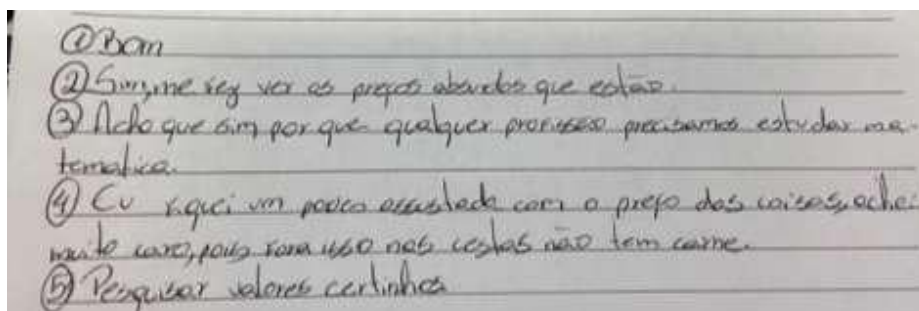 ① Bom
② Sim, me fez ver os preços absurdos que estão.
③ Acho que sim por que qualquer profissão precisamos estudar ma
tematica.
④ Eu fiquei um pouco assustada com o preço das coisas, achei
muito caro, pois fora isso nas cestas não tem carne.
⑤ Pesquisar valores certinhos